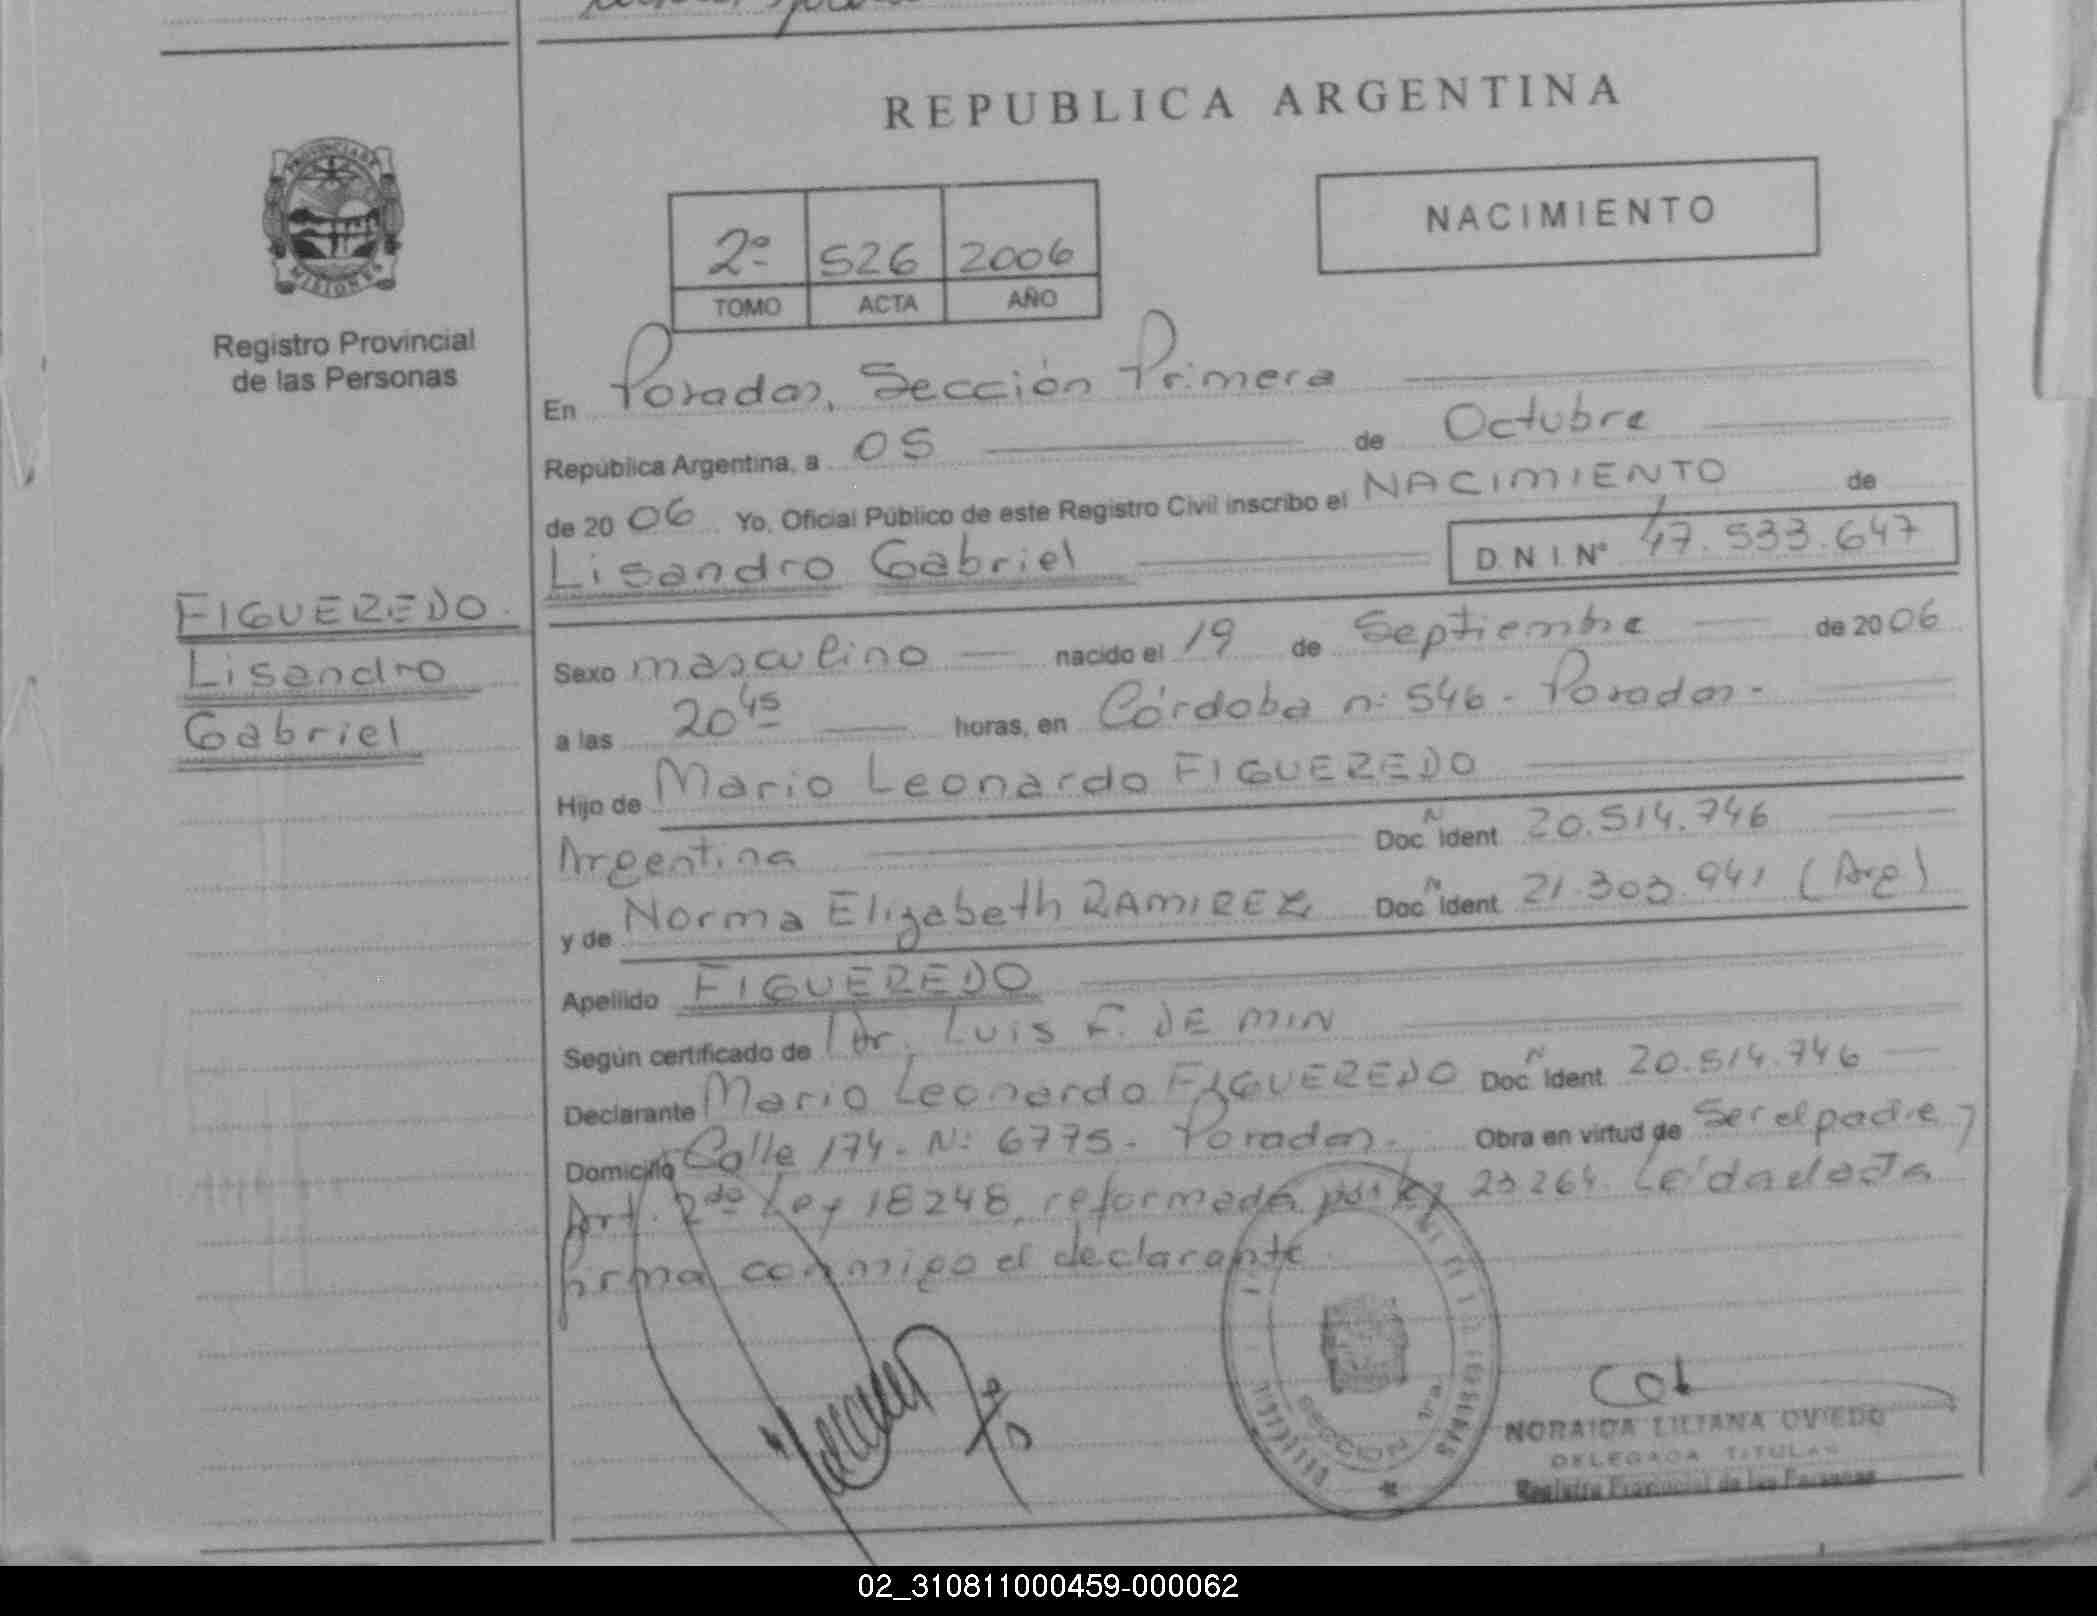 REPUBLICA ARGENTINA
PROVINCIA DE
MISIONES
Registro Provincial
de las Personas
NACIMIENTO
2º 526 2006
TOMO ACTA AÑO
En Posadas, Sección Primera
República Argentina, a 05 de Octubre
de 2006 Yo, Oficial Público de este Registro Civil inscribo el NACIMIENTO de
Lisandro Gabriel D.N.I. Nº 47.533.647
FIGUEREDO.
Lisandro
Gabriel
Sexo masculino nacido el 19 de Septiembre de 2006
a las 20 45 horas, en Córdoba n: 546 - Posadas -
Hijo de Mario Leonardo FIGUEREDO
Argentina Doc. Ident. 20.514.746
y de Norma Elizabeth RAMIREZ Doc. Ident. 21.303.941 (Arg)
Apellido FIGUEREDO
Según certificado de Dr. Luis F. DE MIN
Declarante Mario Leonardo FIGUEREDO Doc. Ident. 20.514.746
Domicilio Calle 174 - N: 6775 - Posadas - Obra en virtud de Ser el padre y
Art. 2do Ley 18248, reformada por ley 23264. Leída el acta
firma conmigo el declarante
SECCION 1ra.
NORAIDA LILIANA OVIEDO
DELEGADA TITULAR
Registro Provincial de las Personas
02_310811000459-000062